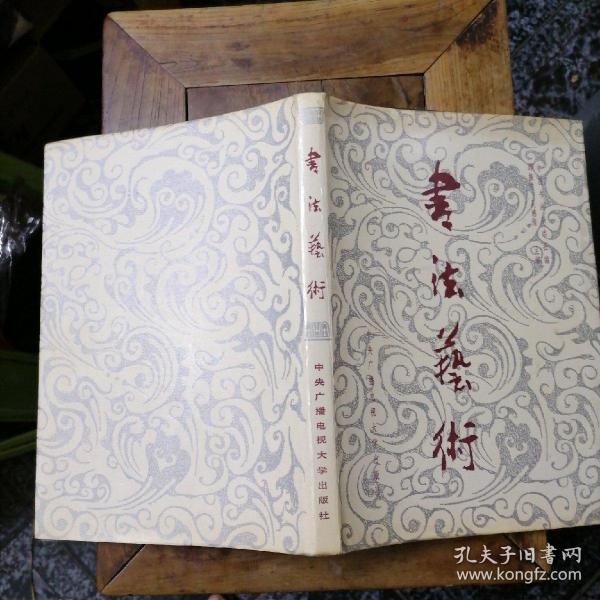 書法藝術
中央广播电视大学出版社
書法藝術
主编
孔夫子旧書网
www.kongfz.com